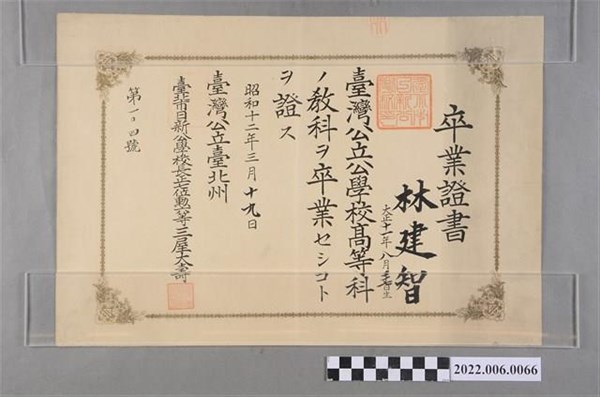 卒業證書
林建智
大正十一年八月 生
臺灣公立公學校高等科
ノ教科ヲ卒業セシコト
ヲ證ス
昭和十二年三月十九日
臺灣公立臺北州
臺北市日新公學校長正七位勲六等三屋大五郎
第一〇四號
2022.006.0066